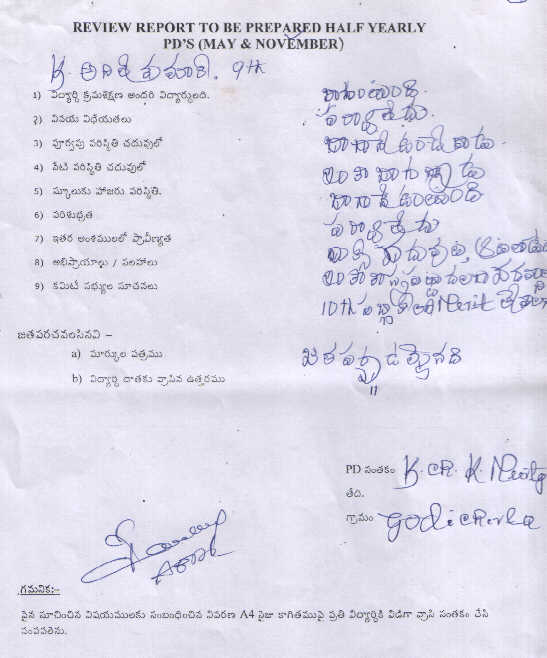 REVIEW REPORT TO BE PREPARED HALF YEARLY
PD'S (MAY & NOVEMBER)
K. 9th
1) విద్యార్ధి క్రమశిక్షణ అందరి విద్యార్ధులది. బాగుంటుంది.
2) వినయ విధేయతలు పర్వాలేదు.
3) పూర్వపు పరిస్థితి చదువులో బాగానే ఉండేవాడు.
4) నేటి పరిస్థితి చదువులో ఇంకా బాగున్నాడు
5) స్కూలుకు హాజరు పరిస్థితి. బాగానే ఉంటుంది
6) పరిశుభ్రత పర్వాలేదు
7) ఇతర అంశములలో ప్రావీణ్యత
8) అభిప్రాయాలు / సలహాలు ఇంకా
9) కమిటీ సభ్యుల సూచనలు 10th Merit
జతపరచవలసినవి –
a) మార్కుల పత్రము జత పర్చడమైనది
b) విద్యార్ధి దాతకు వ్రాసిన ఉత్తరము "
PD సంతకం K. CH. K.
తేది.
గ్రామం Godicherla
గమనిక:-
పైన సూచించిన విషయములకు సంబంధించిన వివరణ A4 సైజు కాగితముపై ప్రతి విద్యార్ధికి విడిగా వ్రాసి సంతకం చేసి
పంపవలెను.